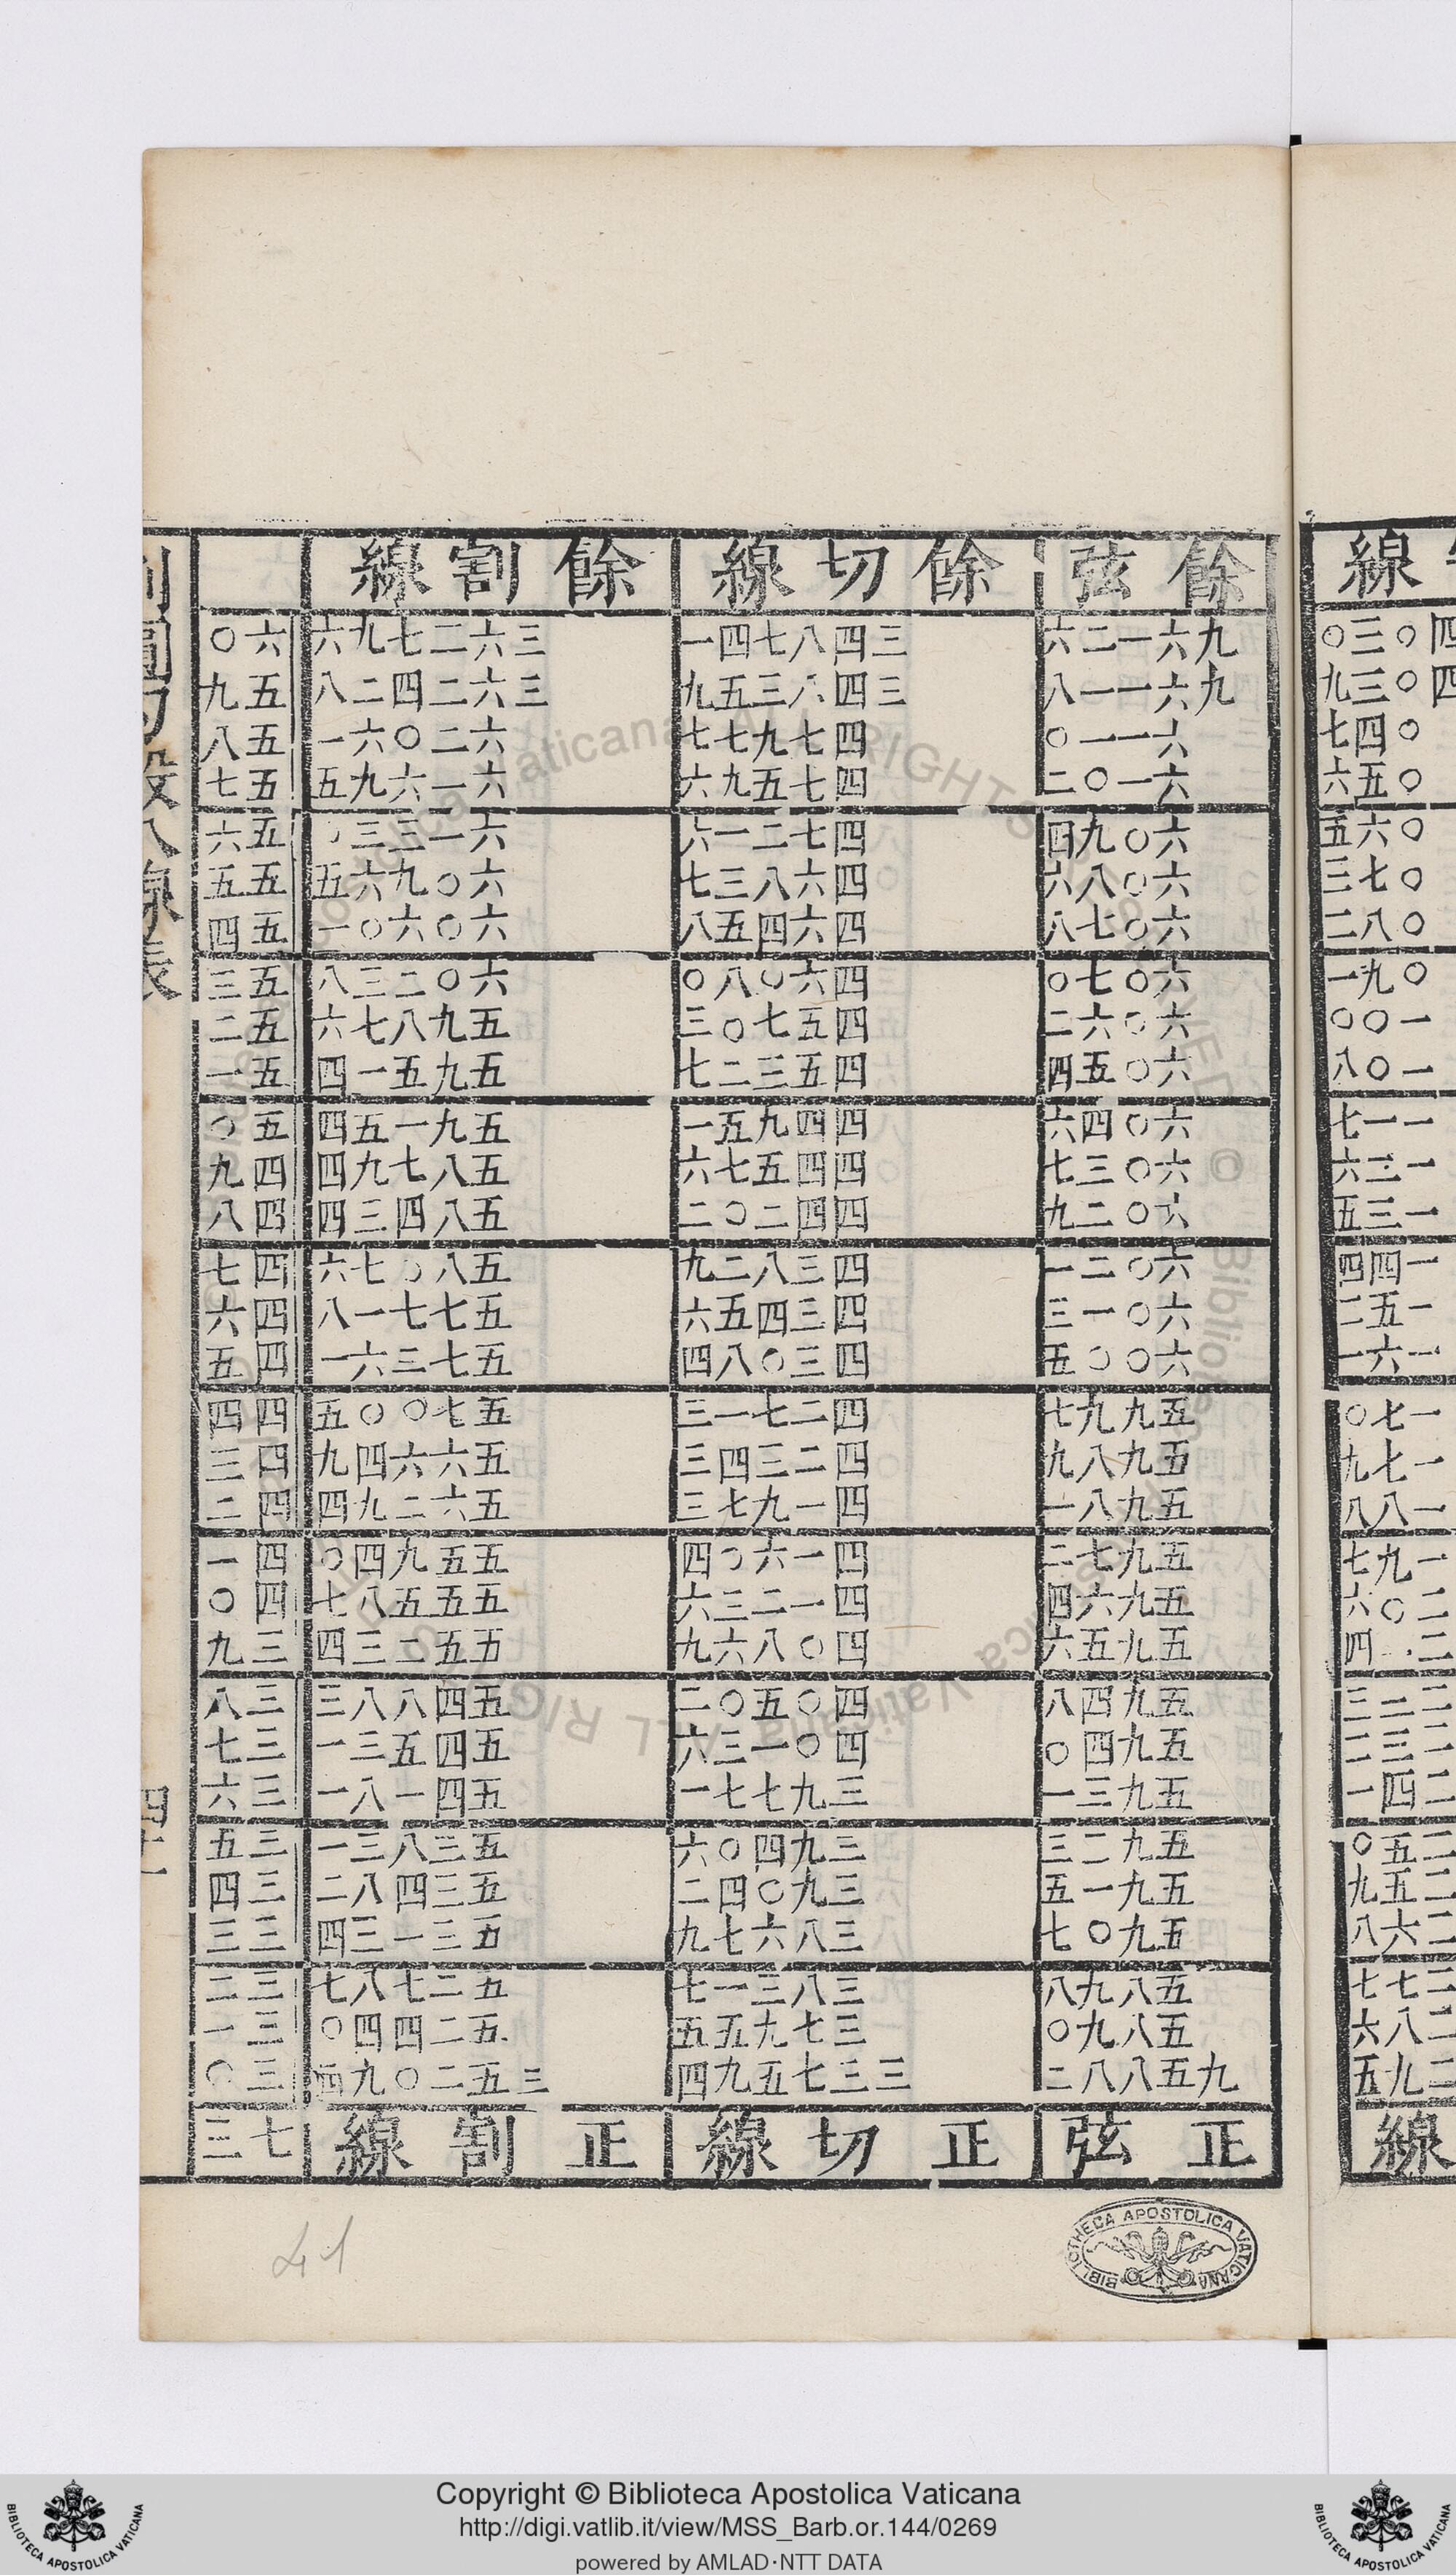 線
四〇三〇
四〇三九
〇四七
〇五六
〇六五
〇七三
〇八二
〇九一
一〇〇
一〇八
一一七
一二六
一三五
一四四
一五二
一六一
一七〇
一七九
一八八
一九七
二〇六
二一四
二二三
二三二
二四一
二五〇
二五九
二六八
二七七
二八六
二九五
線
餘弦 餘切線 餘割線
九六一二六 三四八七四一 三六二七九六 六〇
九六一一八 三四八三五九 三六二四二八 五九
六一一〇 四七九七七 六二〇六一 五八
六一〇二 四七五九六 六一六九五 五七
六〇九四 四七二一六 六一三三〇 五六
六〇八六 四六八三七 六〇九六五 五五
六〇七八 四六四五八 六〇六〇一 五四
六〇七〇 四六〇八〇 六〇二三八 五三
六〇六二 四五七〇三 五九八七六 五二
六〇五四 四五三二七 五九五一四 五一
六〇四六 四四九五一 五九一五四 五〇
六〇三七 四四五七六 五八七九四 四九
六〇二九 四四二〇二 五八四三四 四八
六〇二一 四三八二九 五八〇七六 四七
六〇一三 四三四五六 五七七一八 四六
六〇〇五 四三〇八四 五七三六一 四五
五九九七 四二七一三 五七〇〇五 四四
五九八九 四二三四三 五六六四九 四三
五九八一 四一九七三 五六二九四 四二
五九七二 四一六〇四 五五九四〇 四一
五九六四 四一二三六 五五五八七 四〇
五九五六 四〇八六九 五五二三四 三九
五九四八 四〇五〇二 五四八八三 三八
五九四〇 四〇一三六 五四五三一 三七
五九三一 三九七七一 五四一八一 三六
五九二三 三九四〇六 五三八三一 三五
五九一五 三九〇四二 五三四八二 三四
五九〇七 三八六七九 五三一三四 三三
五八九八 三八三一七 五二七八七 三二
五八九〇 三七九五五 五二四四〇 三一
九五八八二 三三七五九四 三五二〇九四 三〇
正弦 正切線 正割線 七三
割圓勾股八線表
四十一
41
BIBLIOTHECA APOSTOLICA VATICANA
Copyright © Biblioteca Apostolica Vaticana
http://digi.vatlib.it/view/MSS_Barb.or.144/0269
powered by AMLAD·NTT DATA